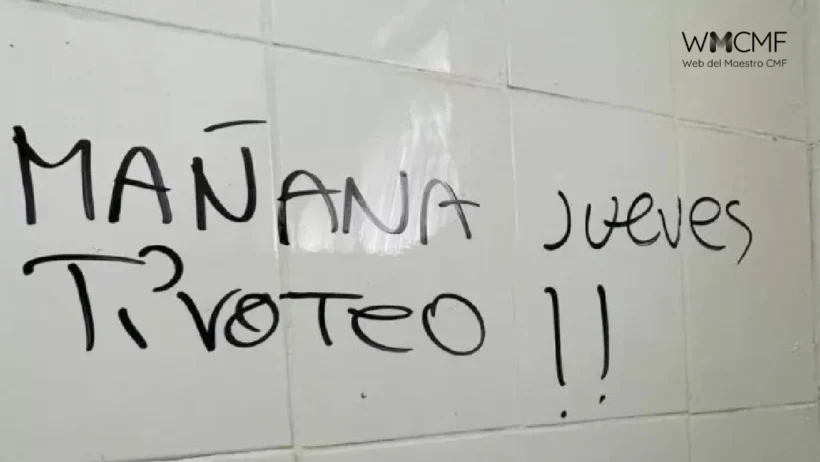 WMCMF
Web del Maestro CMF
MAÑANA Jueves
Tiroteo !!